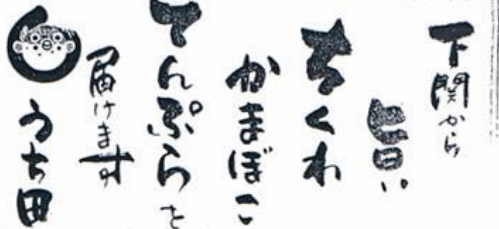 下関から
旨い
ちくわ
かまぼこ
てんぷらを
届けます
うち田